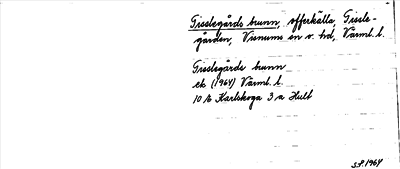 Tisslegårds brunn, offerkälla, Tissle-
gården, Visnums en o. hd, Värml. l.
Tisslegårds brunn
ek (1964) Värml. l.
10 E Karlskoga 3 a Hult
S.P. 1964